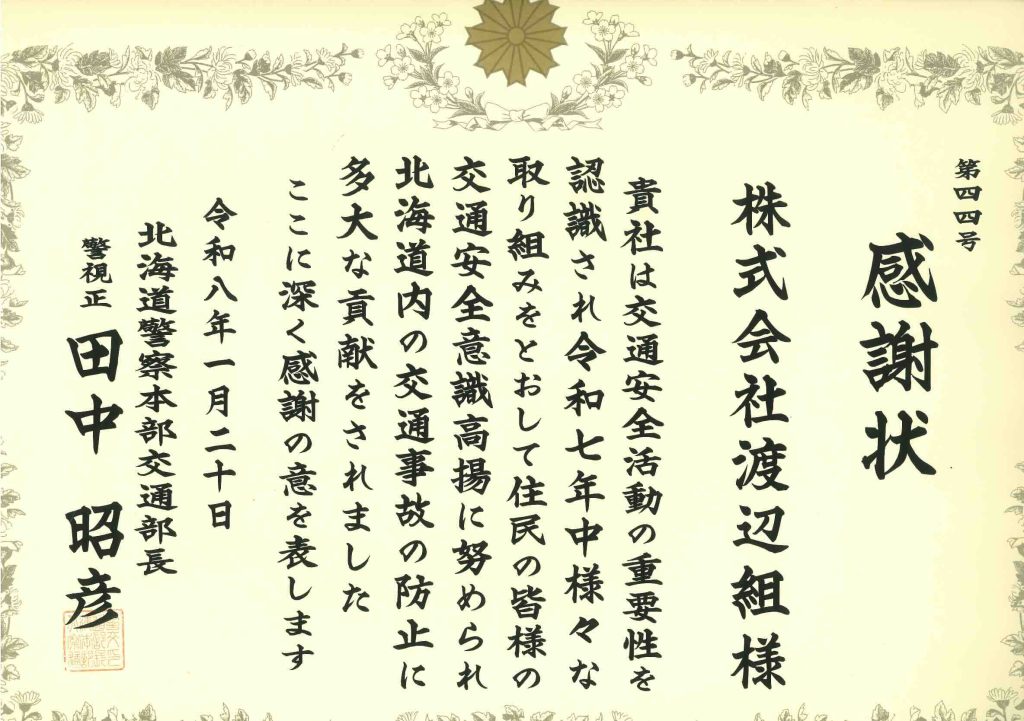 第四四号
感謝状
株式会社渡辺組様
貴社は交通安全活動の重要性を
認識され令和七年中様々な
取り組みをとおして住民の皆様の
交通安全意識高揚に努められ
北海道内の交通事故の防止に
多大な貢献をされました
ここに深く感謝の意を表します
令和八年一月二十日
北海道警察本部交通部長
警視正 田中 昭彦